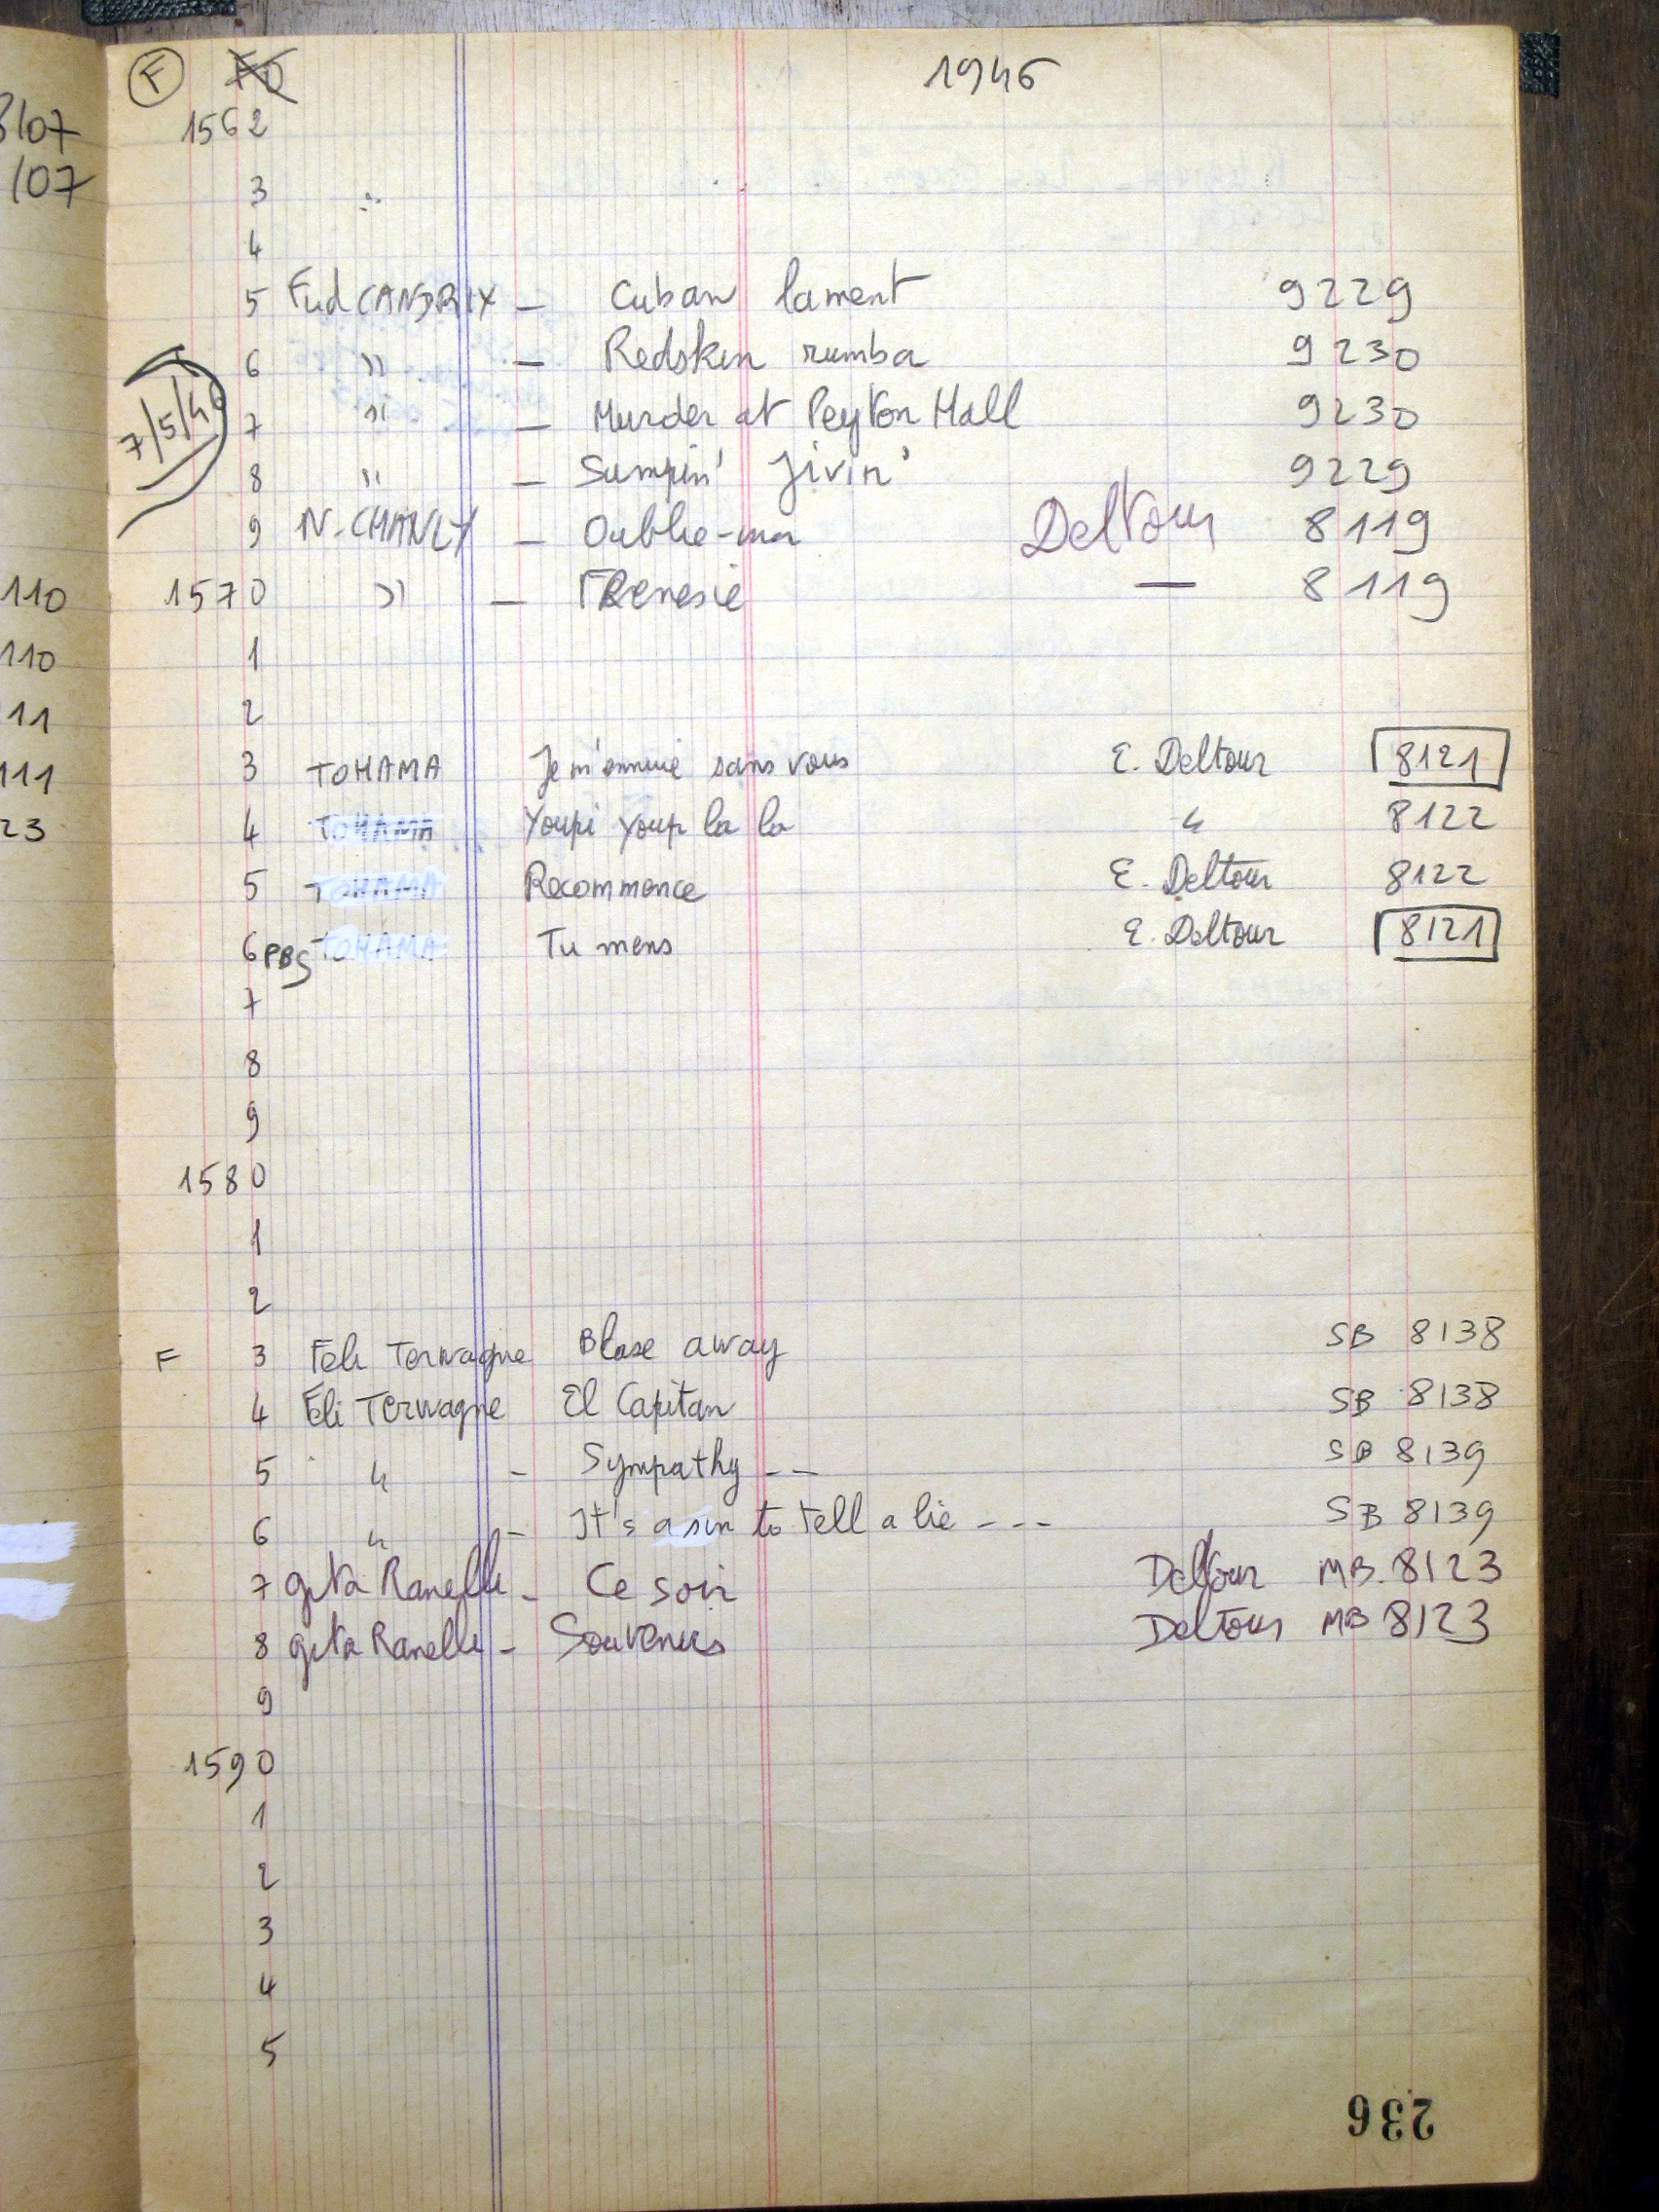 F FO 1946
1562
3
4
5 Fud CANDRIX - Cuban lament 9229
6 " - Redskin rumba 9230
7/5/46
7 " - Murder at Peyton Hall 9230
8 " - Sumpin' Jivin' 9229
9 N. CHANLY - Oublie-moi Deltour 8119
1570 " - FRenesie — 8119
1
2
3 TOHAMA Je m'ennuie sans vous E. Deltour 8121
4 TOHAMA Youpi youp la la " 8122
5 TOHAMA Recommence E. Deltour 8122
6 PBS TOHAMA Tu mens E. Deltour 8121
7
8
9
1580
1
2
F 3 Feli Terwagne Blase away SB 8138
4 Eli Terwagne El Capitan SB 8138
5 " - Sympathy -- SB 8139
6 " - It's a sin to tell a lie --- SB 8139
7 gita Ranelli - Ce soir Deltour MB. 8123
8 gita Ranelli - Souvenirs Deltour MB 8123
9
1590
1
2
3
4
5
236
8107
107
110
110
11
111
23